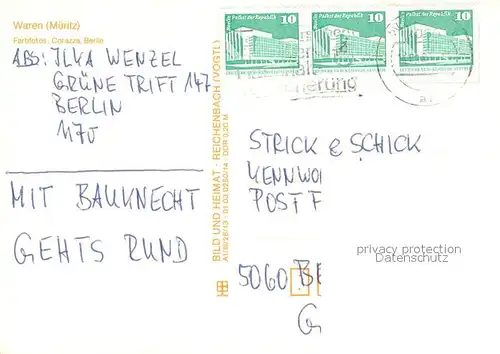 Waren (Müritz)
Farbfotos: Corazza, Berlin
ABS: ILKA WENZEL
GRÜNE TRIFT 147
BERLIN
1170
MIT BAUKNECHT
GEHTS RUND
BILD UND HEIMAT · REICHENBACH (VOGTL)
A1/B/26/13 · 01 03 0230/14 · DDR 0,20 M
Berlin Palast der Republik 10
Palast der Republik 10
Berlin Palast der Republik 10
STRICK & SCHICK
KENNWO
POST F
5060 BE
G
privacy protection
Datenschutz